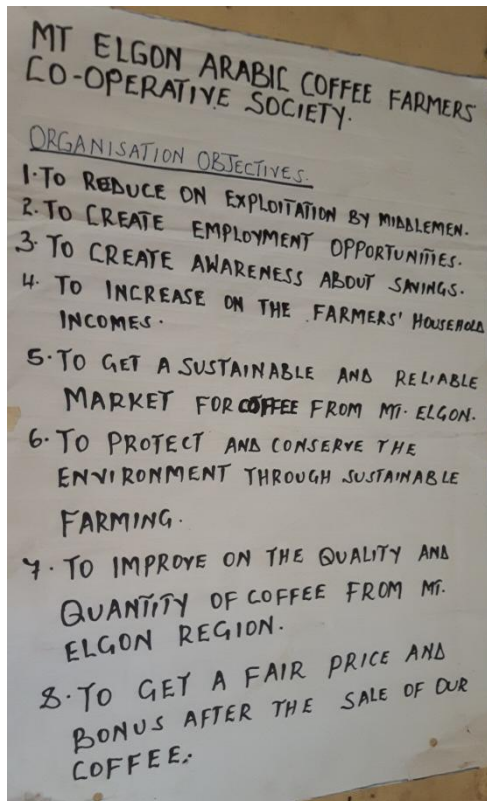 MT ELGON ARABIC COFFEE FARMERS
CO-OPERATIVE SOCIETY.
ORGANISATION OBJECTIVES.
1. TO REDUCE ON EXPLOITATION BY MIDDLEMEN.
2. TO CREATE EMPLOYMENT OPPORTUNITIES.
3. TO CREATE AWARENESS ABOUT SAVINGS.
4. TO INCREASE ON THE FARMERS' HOUSEHOLD
INCOMES.
5. TO GET A SUSTAINABLE AND RELIABLE
MARKET FOR COFFEE FROM MT. ELGON.
6. TO PROTECT AND CONSERVE THE
ENVIRONMENT THROUGH SUSTAINABLE
FARMING.
7. TO IMPROVE ON THE QUALITY AND
QUANTITY OF COFFEE FROM MT.
ELGON REGION.
8. TO GET A FAIR PRICE AND
BONUS AFTER THE SALE OF OUR
COFFEE.